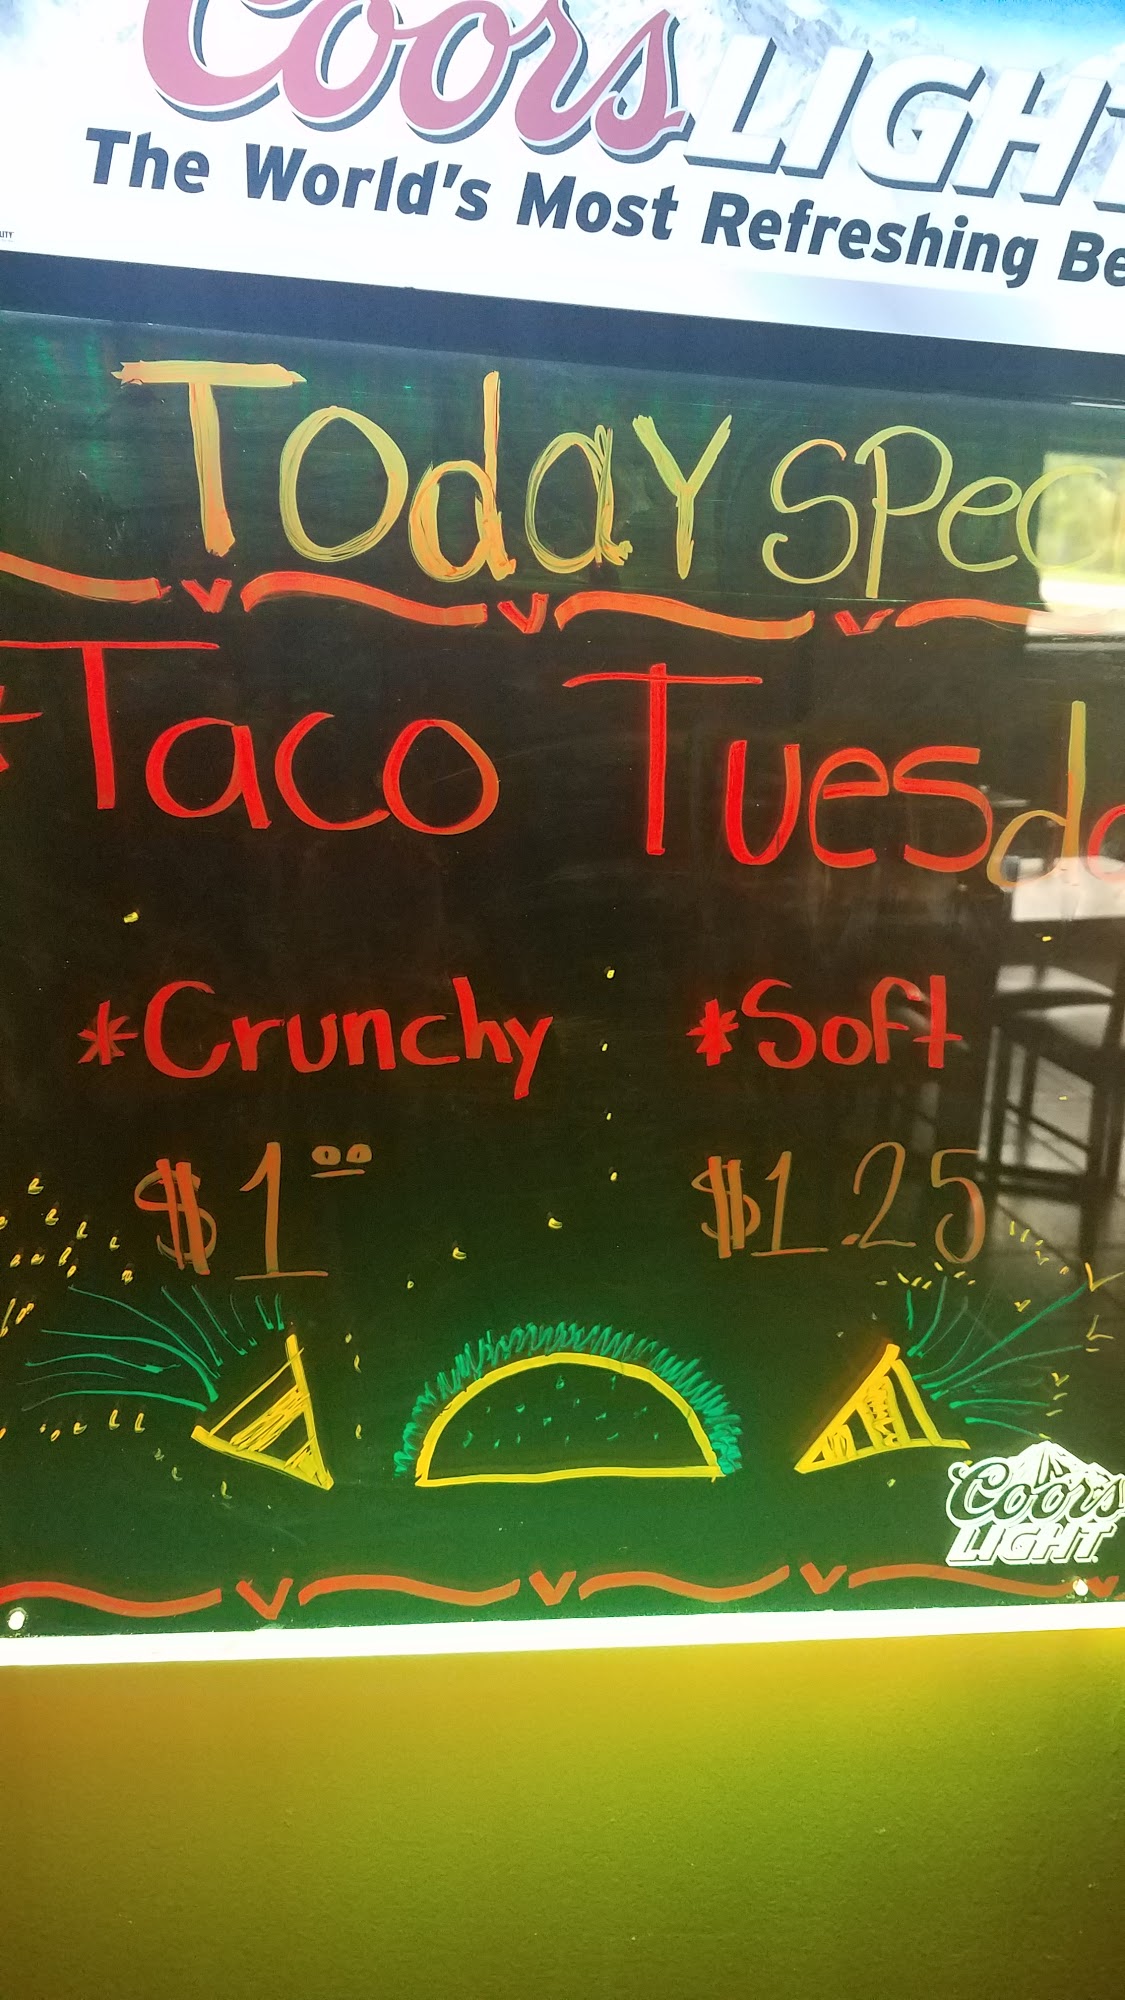 Coors LIGHT
The World's Most Refreshing Be
Today Spec
*Taco Tuesda
*Crunchy *Soft
$1.00 $1.25
Coors
LIGHT